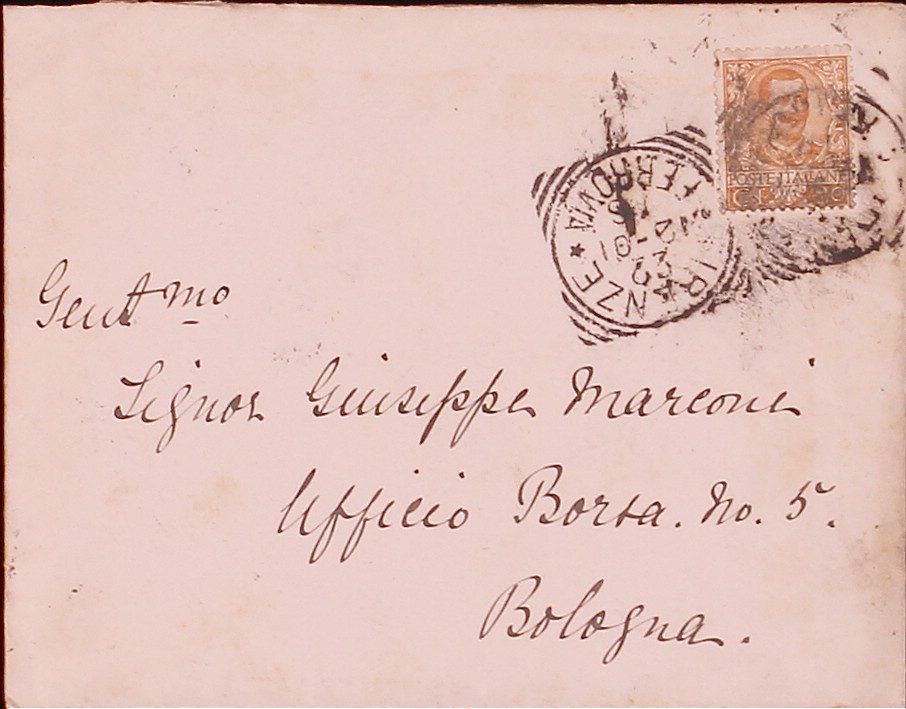 POSTE ITALIANE
FIRENZE
FERROVIA
Gent.mo
Signor Giuseppe Marconi
Ufficio Borsa. No. 5.
Bologna.